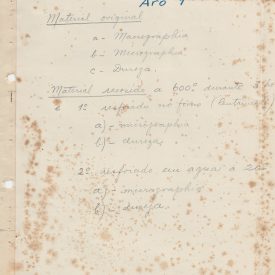 Aço 1
Material original
a - Macrographia
b - Micrographia
c - Dureza.
Material recozido a 600° durante 3
e 1º resfriado no forno (
a) - micrographia
b) - dureza
2º resfriado em agua a 20°
a) - micrographia
b) - dureza.